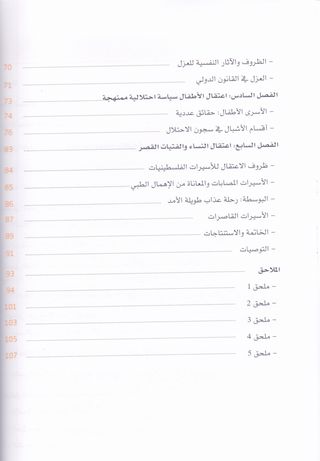 - الظروف والآثار النفسية للعزل 70
- العزل في القانون الدولي 71
الفصل السادس: اعتقال الأطفال سياسة احتلالية ممنهجة 73
- الأسرى الأطفال: حقائق عددية 74
- أقسام الأشبال في سجون الاحتلال 76
الفصل السابع: اعتقال النساء والفتيات القصر 83
- ظروف الاعتقال للأسيرات الفلسطينيات 84
- الأسيرات المصابات والمعاناة من الإهمال الطبي 85
- البوسطة: رحلة عذاب طويلة الأمد 86
- الأسيرات القاصرات 87
- الخاتمة والاستنتاجات 89
- التوصيات 91
الملاحق 93
- ملحق 1 94
- ملحق 2 101
- ملحق 3 103
- ملحق 4 105
- ملحق 5 107